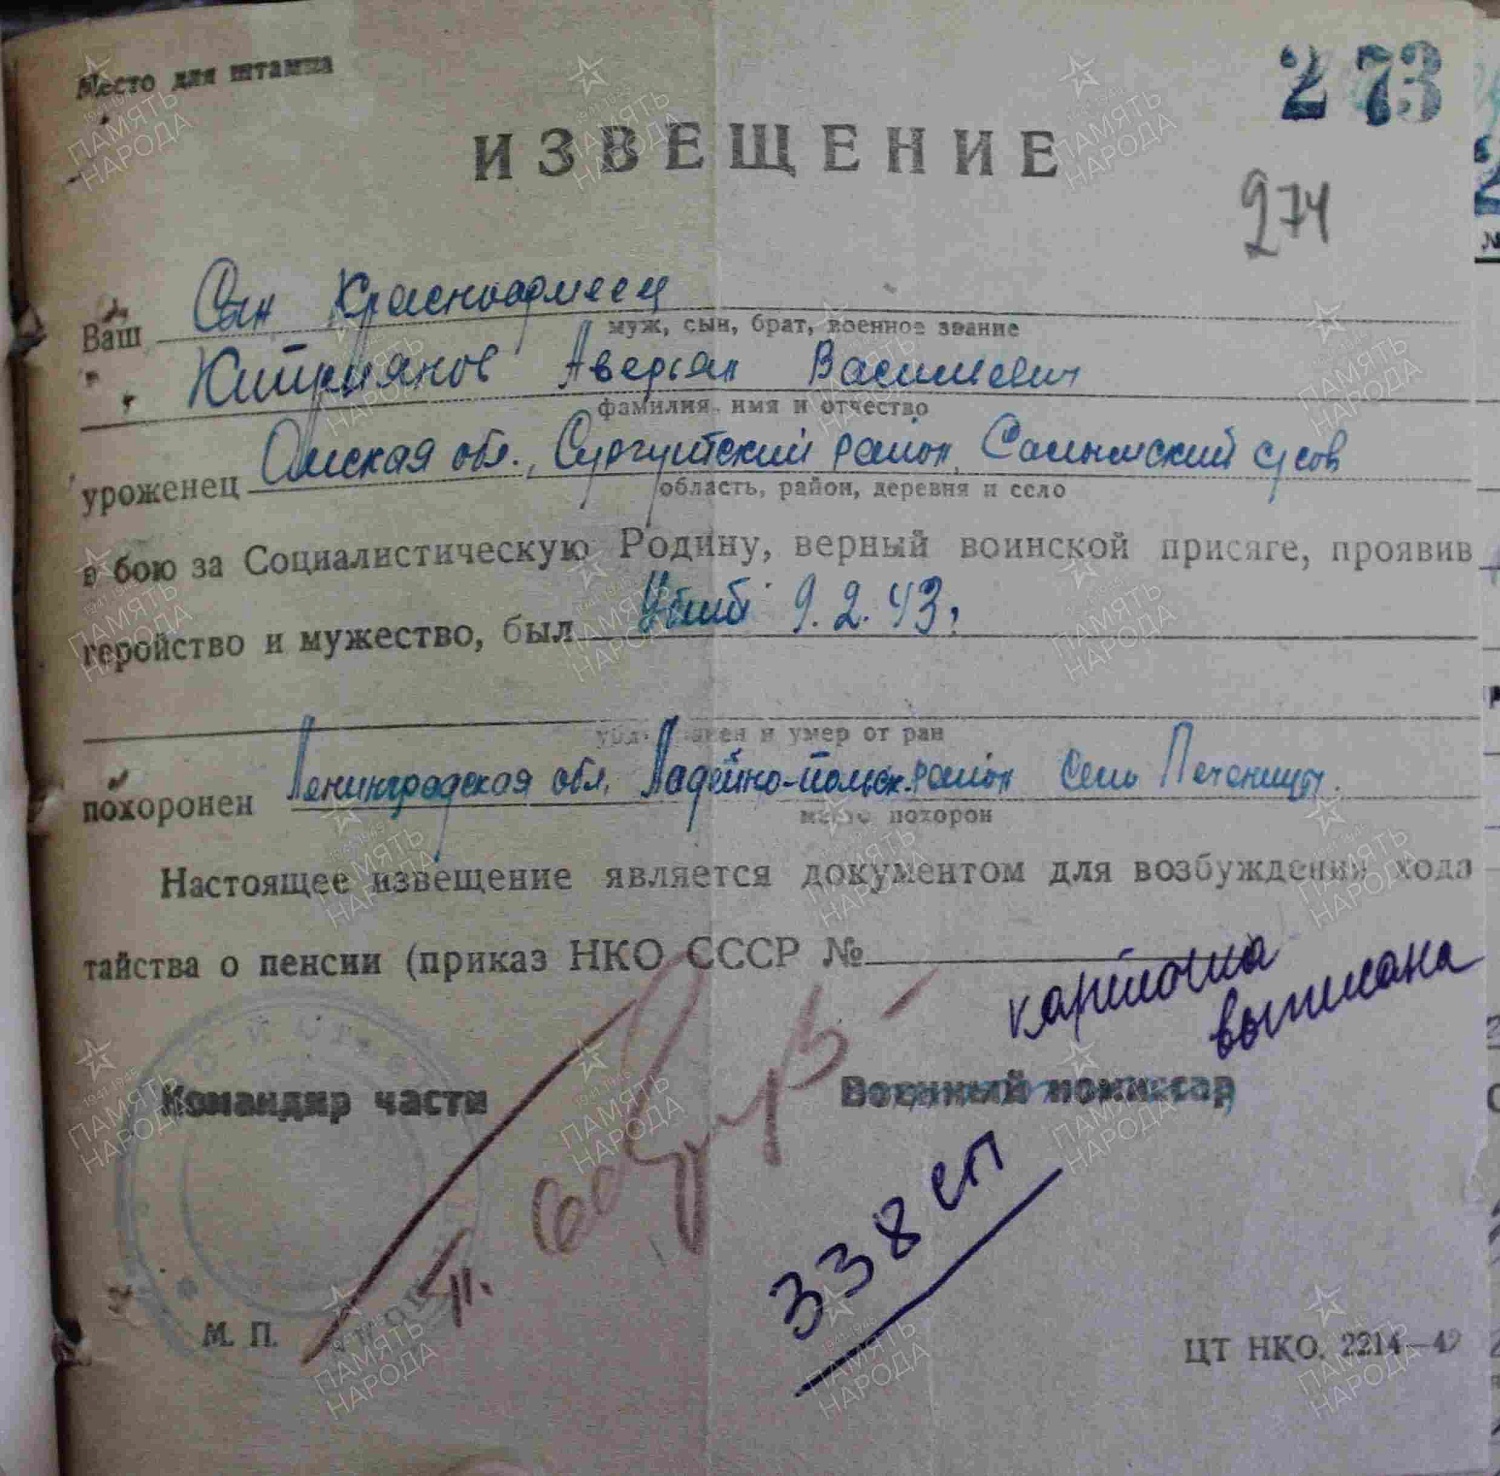 Место для штампа
273
ИЗВЕЩЕНИЕ
274
Ваш Сын Красноармеец
муж, сын, брат, военное звание
Киприянов Аверьян Васильевич
фамилия, имя и отчество
уроженец Омская обл., Сургутский район, Салымский с/сов
область, район, деревня и село
в бою за Социалистическую Родину, верный воинской присяге, проявив
геройство и мужество, был Убит 9.2.43г
и умер от ран
похоронен Ленинградская обл. Ладейно-Польск. район Село Печеницы.
место похорон
Настоящее извещение является документом для возбуждения хода
тайства о пенсии (приказ НКО СССР №
карточка
выписана
Командир части
Военный комиссар
338 сп
М. П.
ЦТ НКО. 2214—42
ПАМЯТЬ
НАРОДА
1941-1945